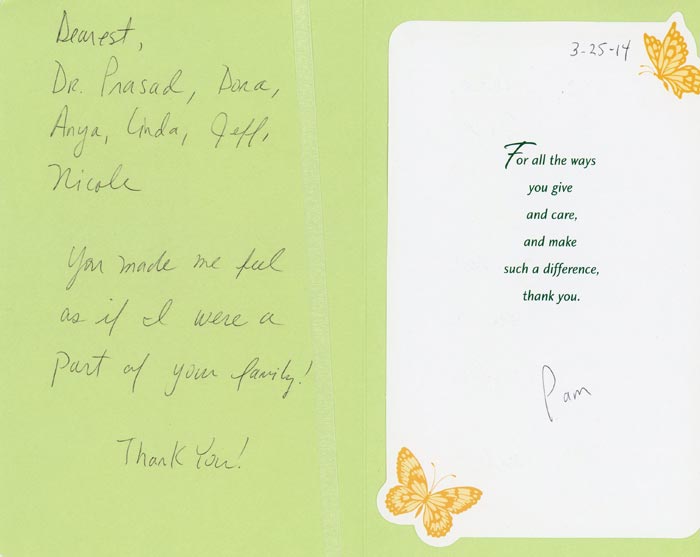 Dearest,
Dr. Prasad, Dora,
Anya, Linda, Jeff,
Nicole
You made me feel
as if I were a
part of your family!
Thank You!
3-25-14
For all the ways
you give
and care,
and make
such a difference,
thank you.
Pam